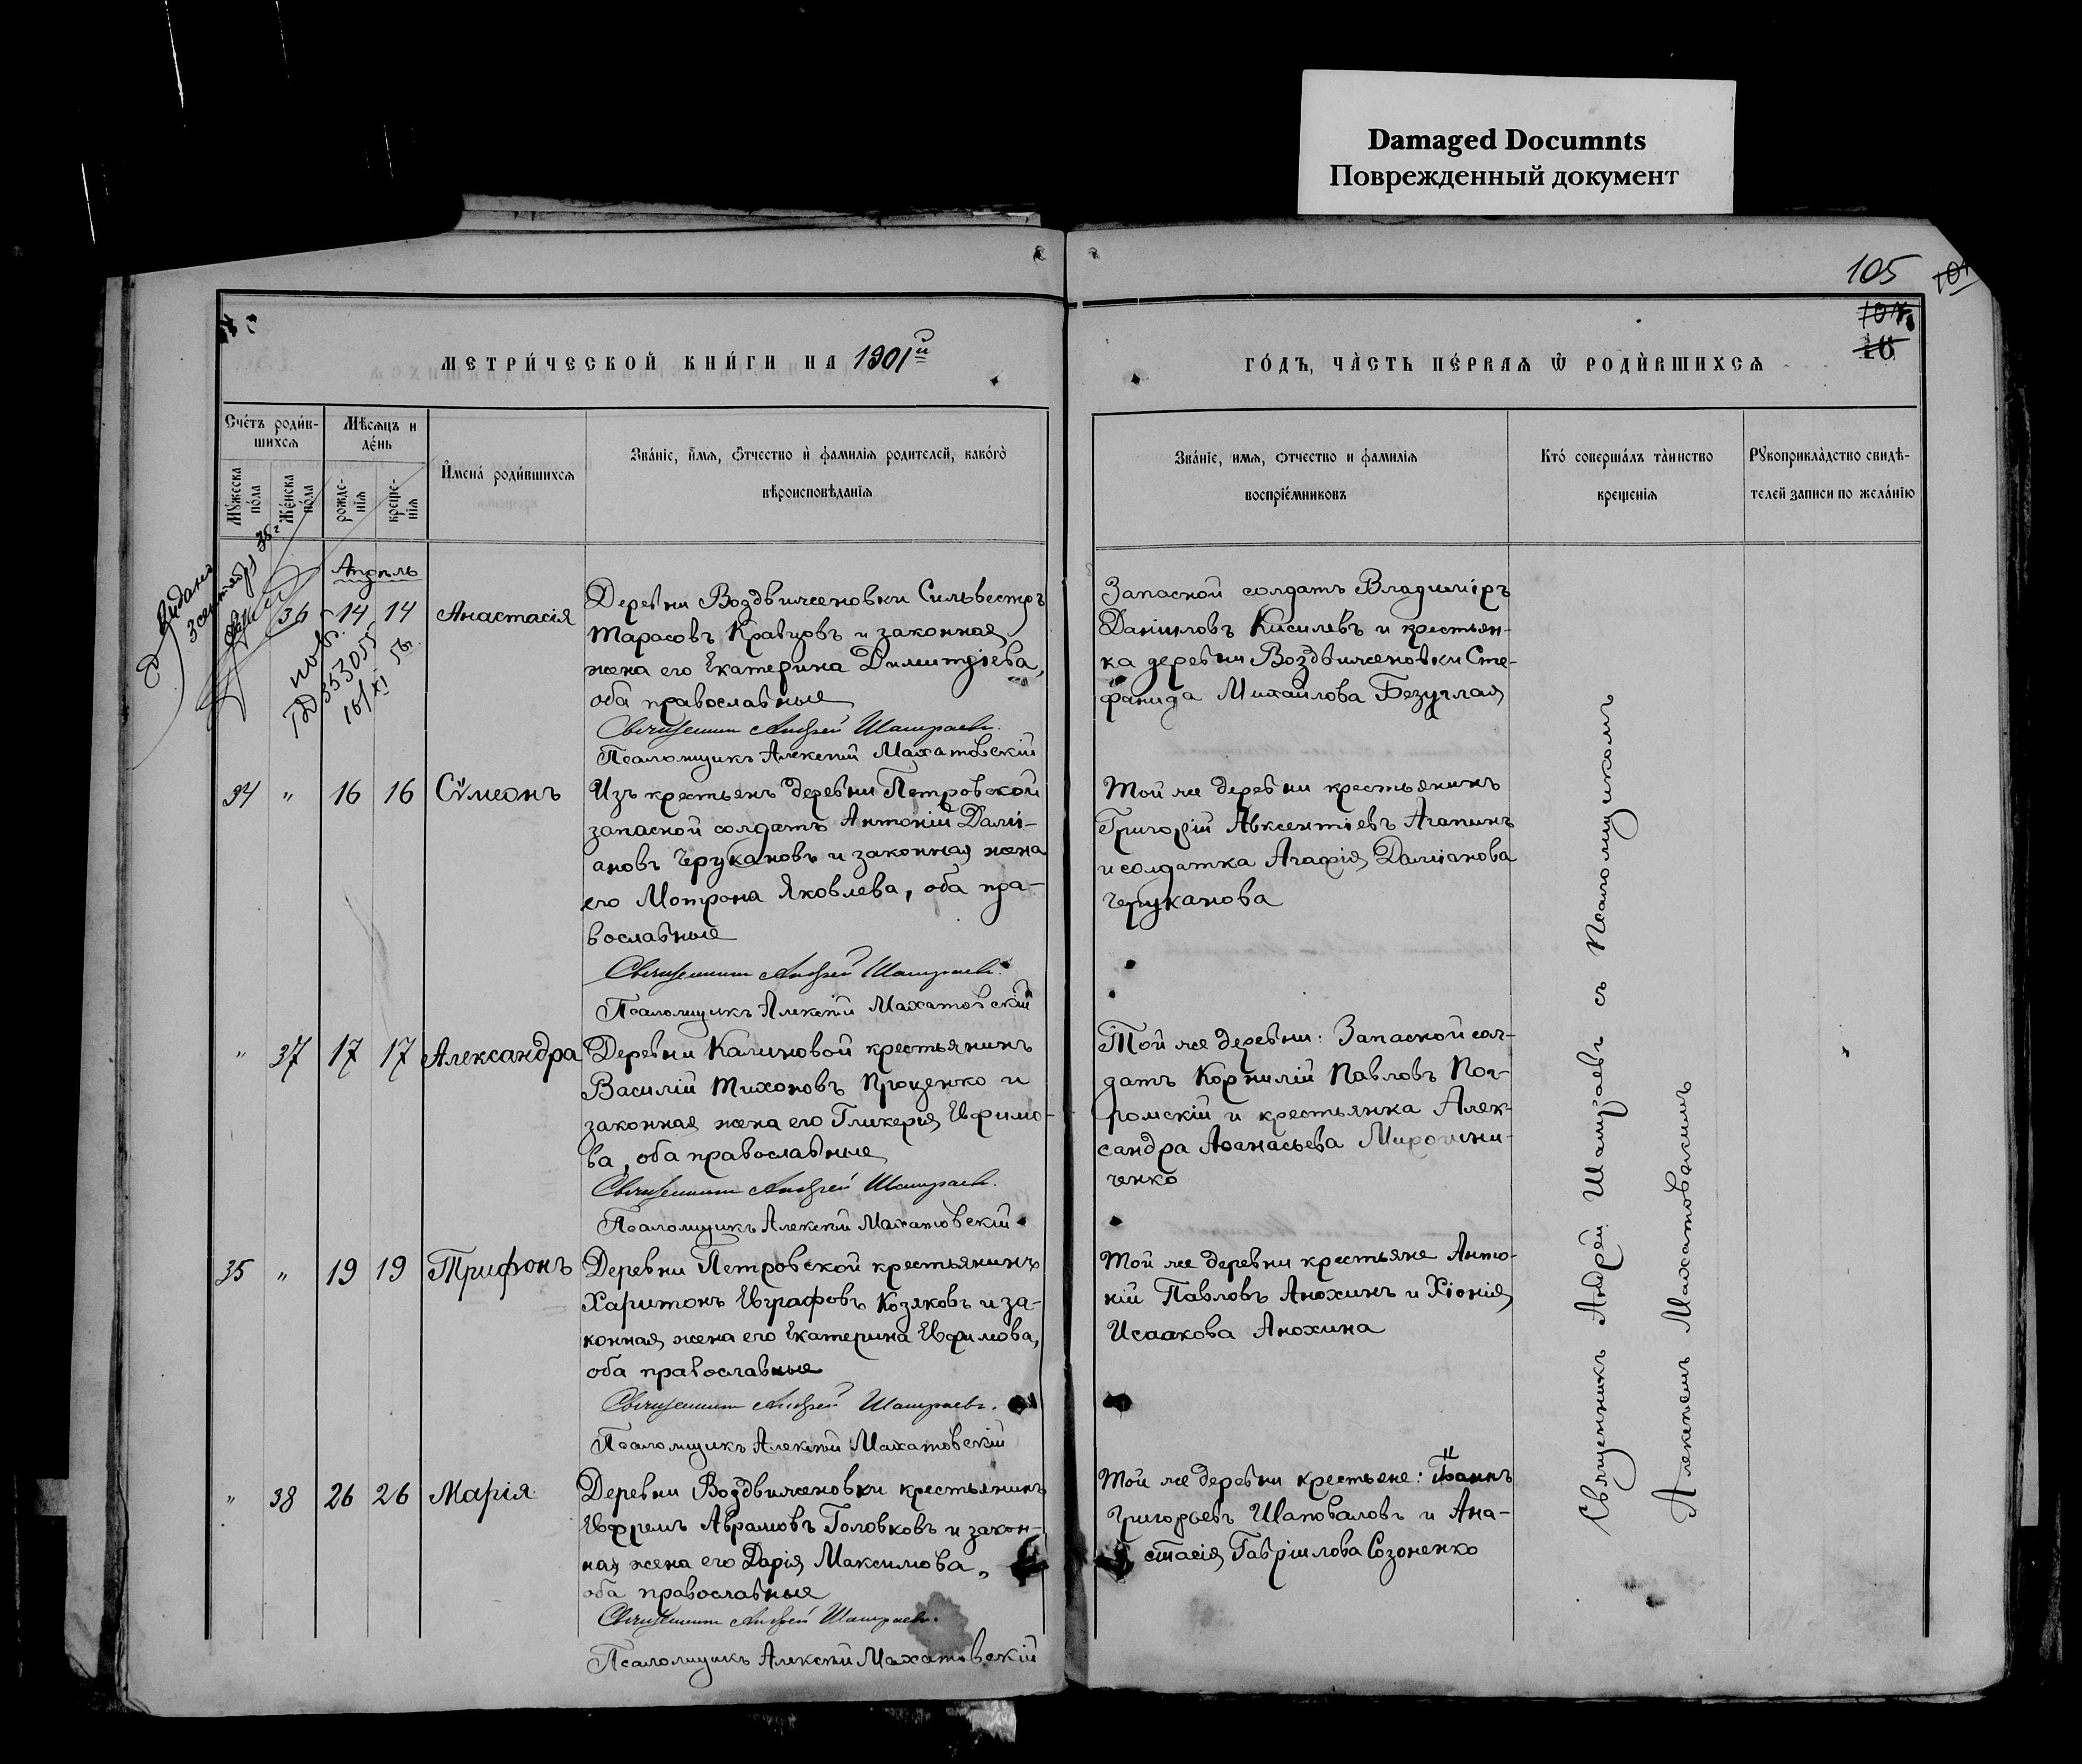 Damaged Documnts
Поврежденный документ
105
104
16
МЕТРИ́ЧЕСКОЙ КНИ́ГИ НА 1901й
ГО́ДЪ, ЧА̀СТЬ ПЕ́РВАѦ Ѿ РОДЍВШИХСѦ
Сче́тъ роди́в-
шихсѧ
Мѣсѧцъ и
де́нь
Мꙋ́жеска
по́ла
Же́нска
по́ла
рожде-
нїѧ
креще-
нїѧ
И҆мена́ роди́вшихсѧ
Зва́нїе, и҆́мѧ, ѻ҆́тчество и҆ фамилїѧ родителей, како́гѡ
вѣроисповѣданїѧ
Зва́нїе, имѧ, ѻтчество и фамилїѧ
воспрїе́мниковъ
Кто́ соверша́лъ та̀инство
крещенїѧ
Рꙋкоприкла̀дство свидѣ-
телей записи по жела́нїю
Апрѣль
36 14 14 Анастасія
Деревни Воздвиженовки Сильвестръ
Тарасовъ Кравцовъ и законная
жена его Екатерина Димитріева,
оба православные
Священникъ Андрей Шатраевъ.
Псаломщикъ Алексій Махатовскій
Запасной солдатъ Владиміръ
Даніиловъ Кисилевъ и крестьян-
ка деревни Воздвиженовки Сте-
фанида Михаилова Безуглая
34 " 16 16 Сѵмеонъ
Изъ крестьянъ деревни Петровской
запасной солдатъ Антоній Дамі-
ановъ Черукановъ и законная жена
его Мотрона Яковлева, оба пра-
вославные
Священникъ Андрей Шатраевъ.
Псаломщикъ Алексій Махатовскій
Той же деревни крестьянинъ
Григорій Авксентіевъ Агапинъ
и солдатка Агафія Даміанова
Черуканова
" 37 17 17 Александра
Деревни Калиновой крестьянинъ
Василій Тихоновъ Проценко и
законная жена его Гликерія Ефимо-
ва, оба православные
Священникъ Андрей Шатраевъ.
Псаломщикъ Алексій Махатовскій
Той же деревни: Запасной сол-
датъ Корнилій Павловъ Пог-
ромскій и крестьянка Алек-
сандра Аѳанасьева Мирошни-
ченко
35 " 19 19 Трифонъ
Деревни Петровской крестьянинъ
Харитонъ Евграфовъ Козяковъ и за-
конная жена его Екатерина Ефимова,
оба православные
Священникъ Андрей Шатраевъ.
Псаломщикъ Алексій Махатовскій
Той же деревни крестьяне Анто-
ній Павловъ Анохинъ и Хіонія
Исаакова Анохина
" 38 26 26 Марія
Деревни Воздвиженовки крестьянинъ
Ефремъ Аврамовъ Головковъ и закон-
ная жена его Дарія Максимова,
оба православные
Священникъ Андрей Шатраевъ.
Псаломщикъ Алексій Махатовскій
Той же деревни крестьяне: Іоаннъ
Григорьевъ Шаповаловъ и Ана-
стасія Гавріилова Созоненко
Священникъ Андрей Шатраевъ съ Псаломщикомъ
Алексіемъ Махатовскимъ